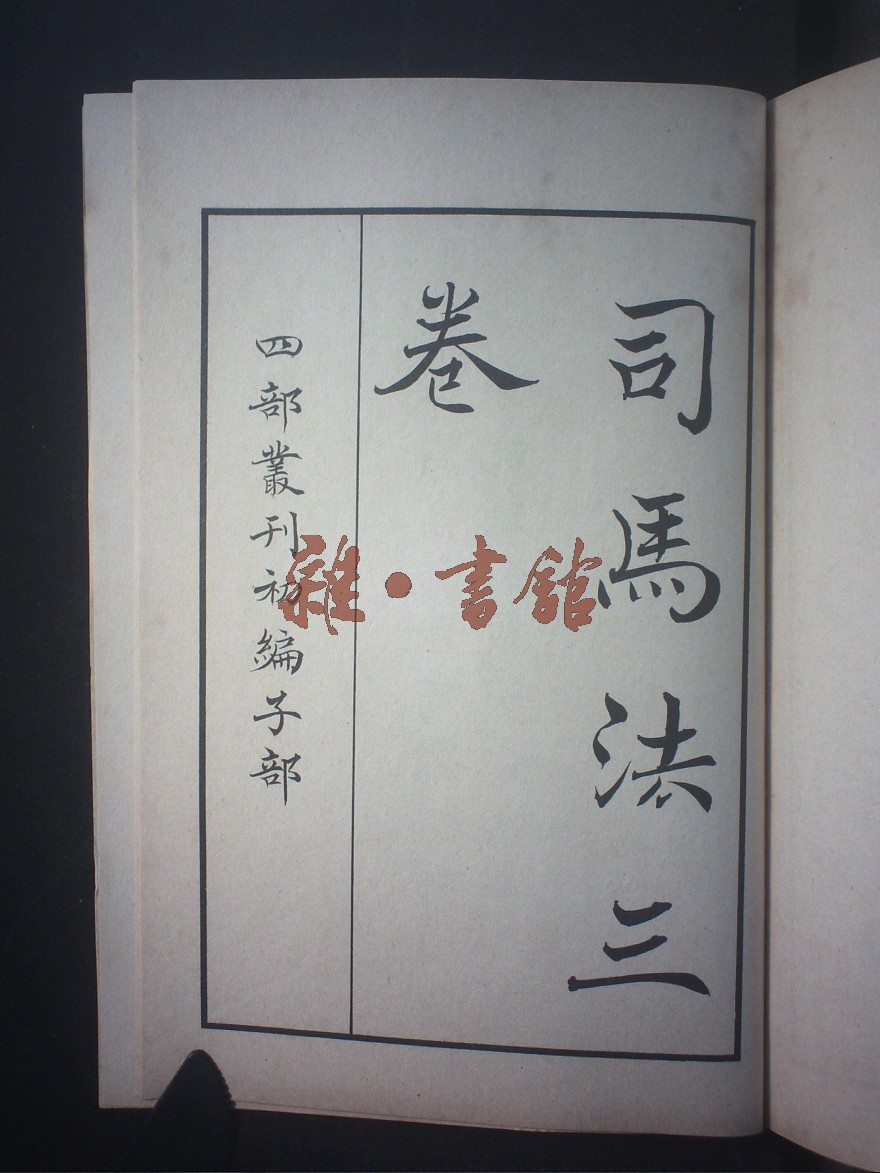 司馬法三
卷
四部叢刊初編子部
雜·書館